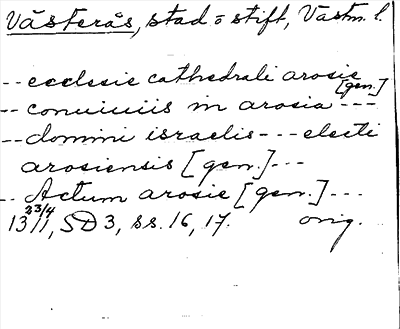 Västerås, stad o stift, Västm. l.
-- ecclesie cathedrali arosie [gen.]
-- conuiuiis in arosia ---
-- domini israelis --- electi
arosiensis [gen.] ---
-- Actum arosie [gen.] ---
1311 23/4, SD 3, ss. 16, 17. orig.